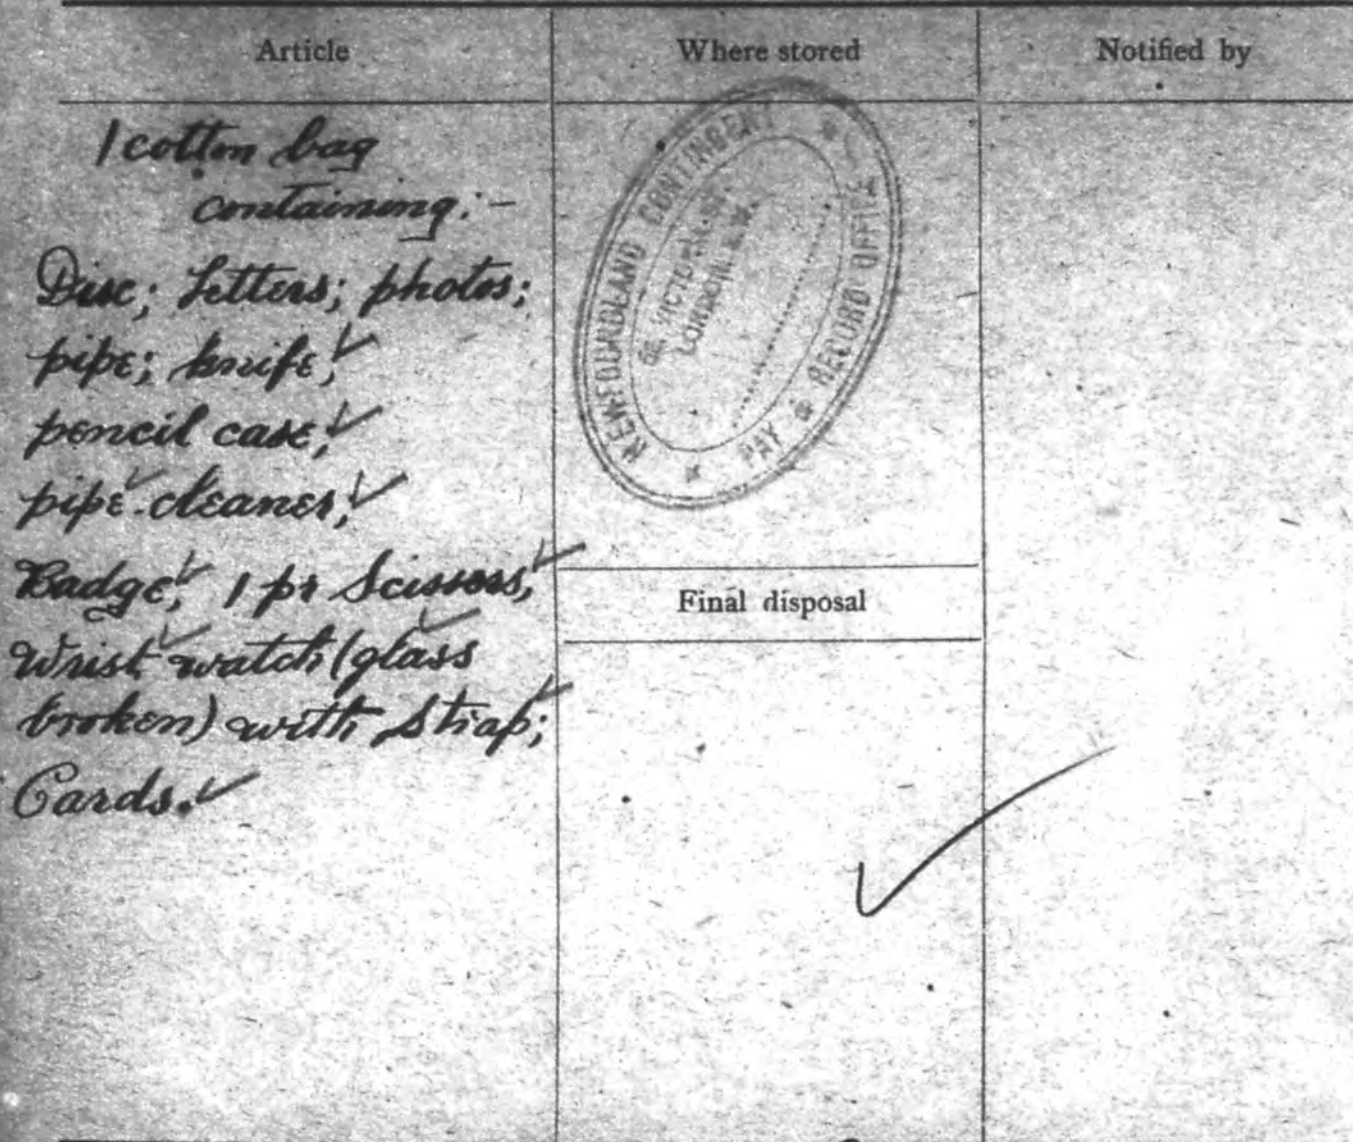 Article
Where stored
Notified by
1 cotton bag
containing:-
Disc; Letters; photos;
pipe; knife;
pencil case;
pipe-cleaner;
Badge; 1 pr Scissors;
Wrist watch (glass
broken) with strap;
Cards.
NEWFOUNDLAND CONTINGENT
PAY & RECORD OFFICE
VICTORIA ST.
LONDON. S.W.
Final disposal